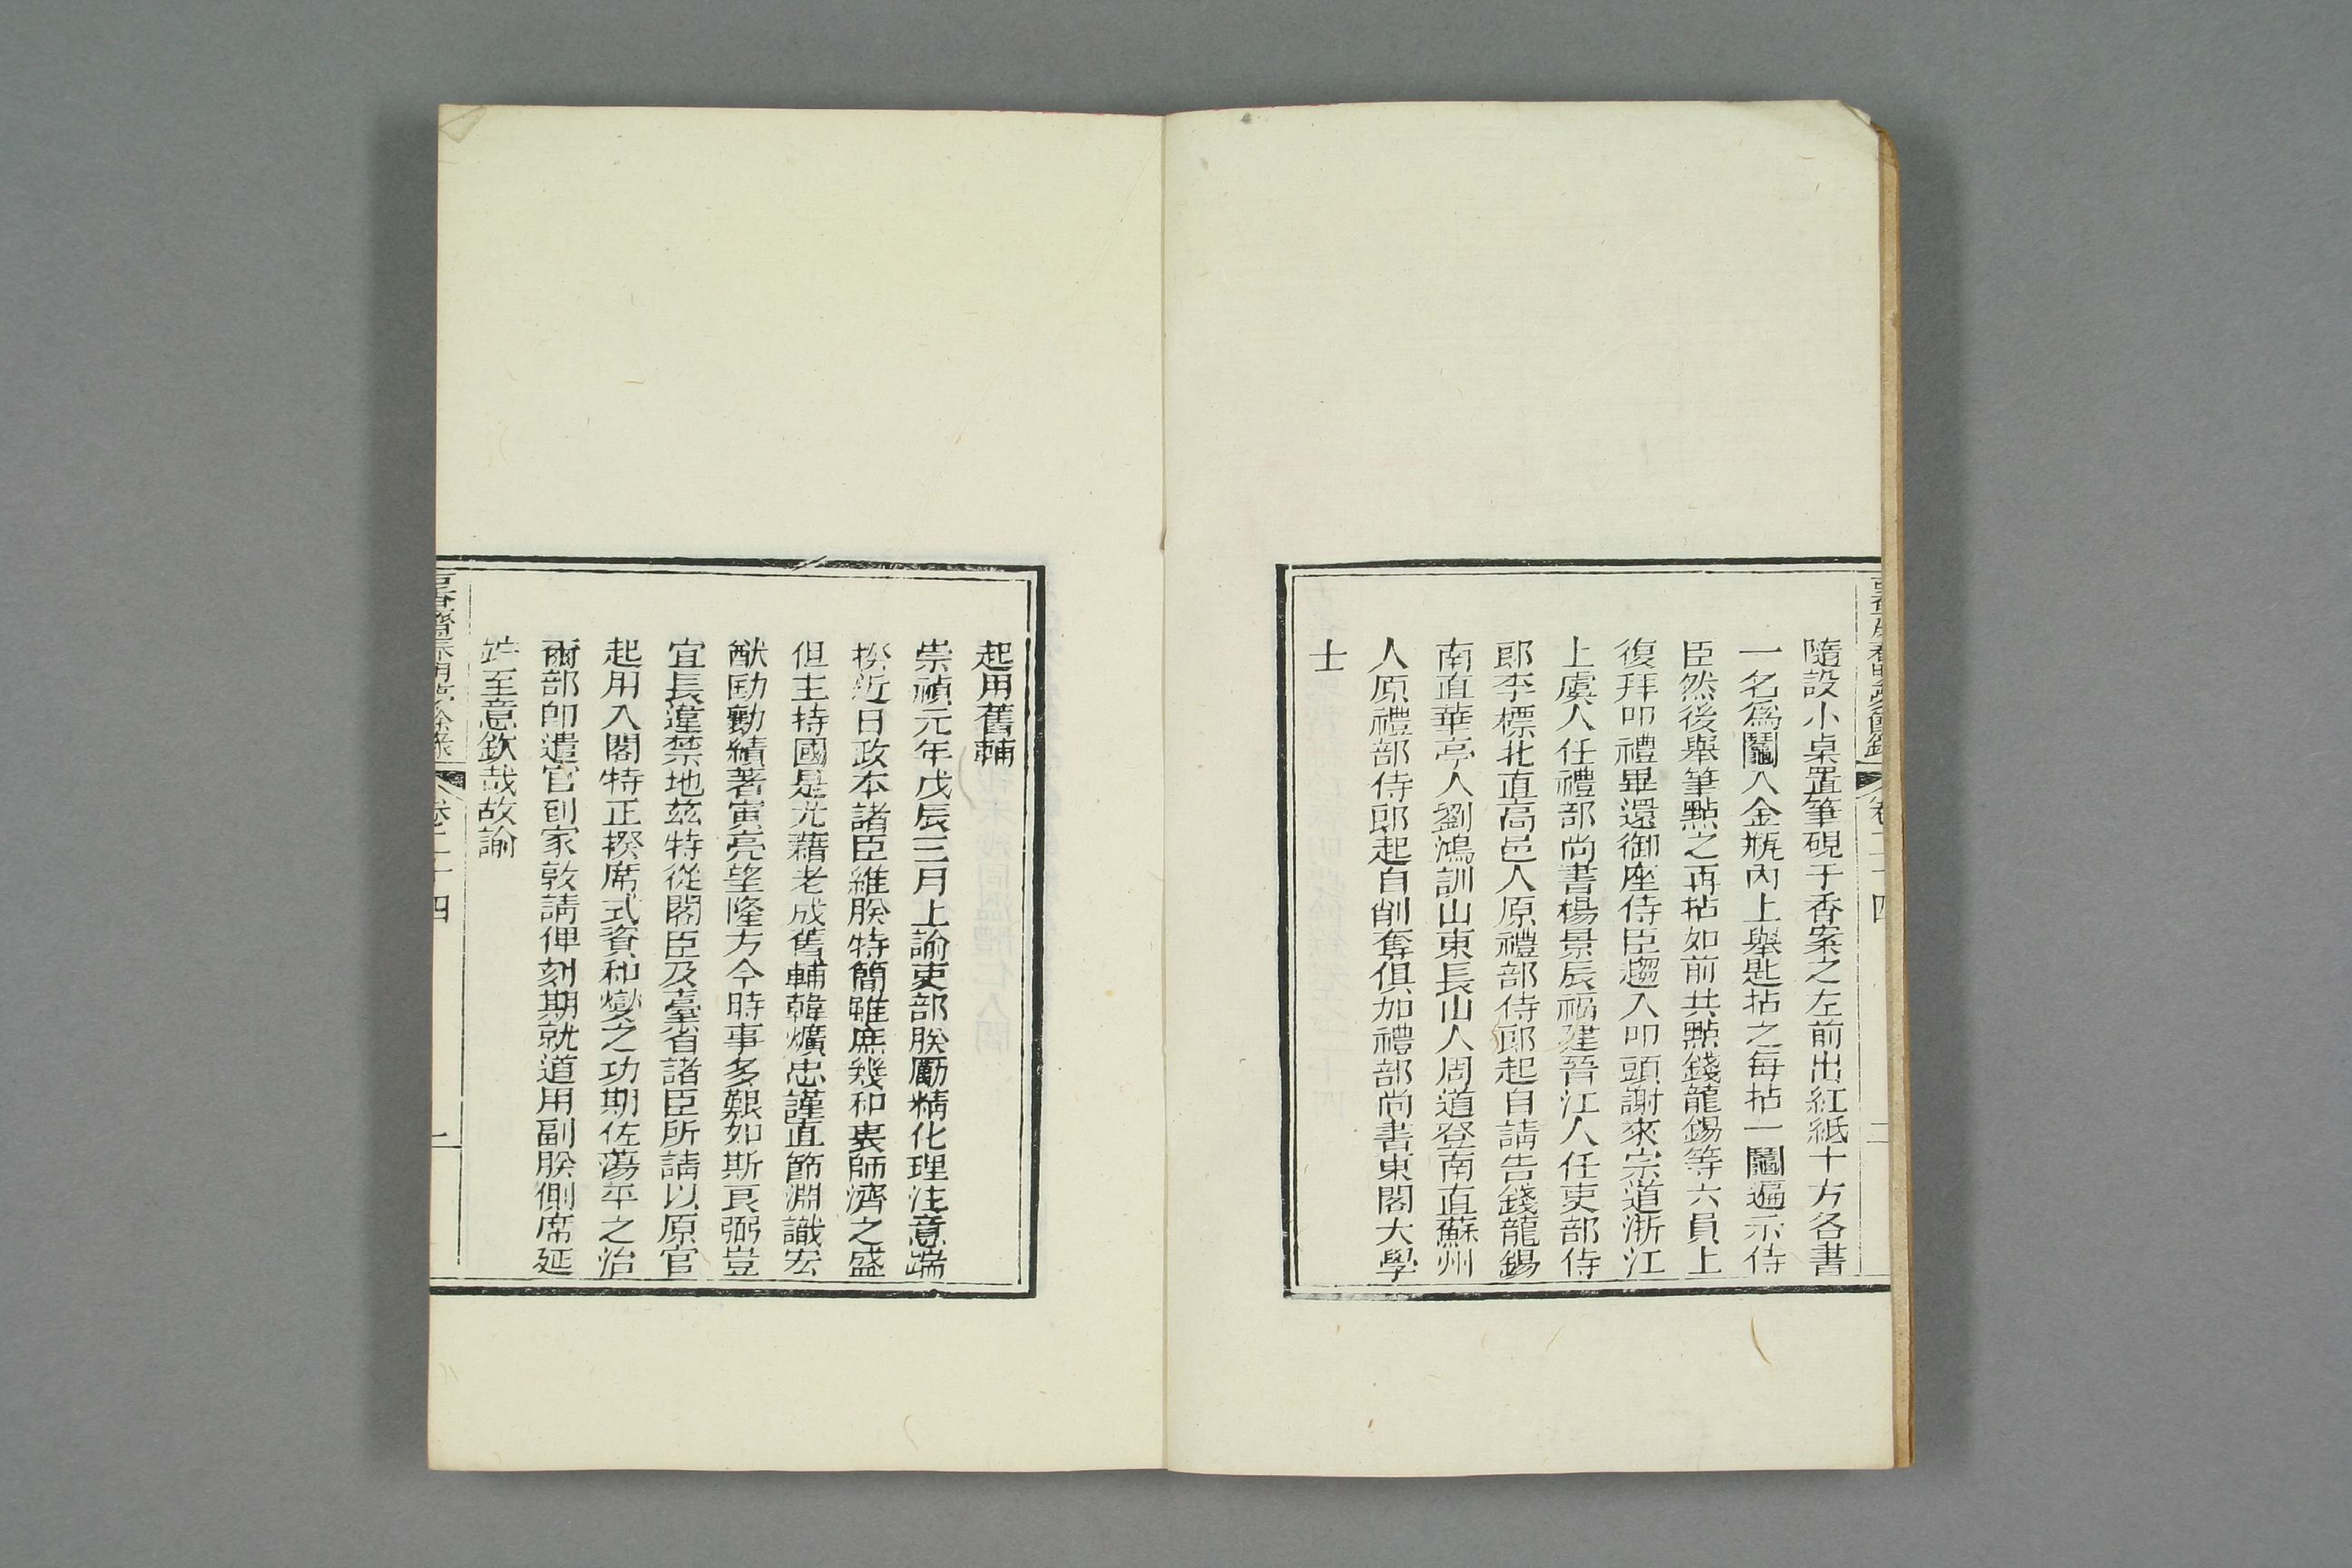 隨設小桌置筆硯于香案之左前出紅紙十方各書
一名爲鬮入金瓶內上舉匙拈之每拈一鬮遍示侍
臣然後舉筆點之再拈如前共點錢龍錫等六員上
復拜叩禮畢還御座侍臣趨入叩頭謝來宗道浙江
上虞人任禮部尚書楊景辰福建晉江人任吏部侍
郎李標北直高邑人原禮部侍郎起自請告錢龍錫
南直華亭人劉鴻訓山東長山人周道登南直蘇州
人原禮部侍郎起自削奪俱加禮部尚書東閣大學
士
起用舊輔
崇禎元年戊辰三月上諭吏部朕勵精化理注意端
揆近日政本諸臣維朕特簡雖庶幾和衷師濟之盛
但主持國是尤藉老成舊輔韓爌忠謹直節淵識宏
猷勛勤績著寅亮望隆方今時事多艱如斯良弼豈
宜長違禁地茲特從閣臣及臺省諸臣所請以原官
起用入閣特正揆席式資和燮之功期佐蕩平之治
爾部卽遣官到家敦請俾刻期就道用副朕側席延
竚至意欽哉故諭
卷二十四